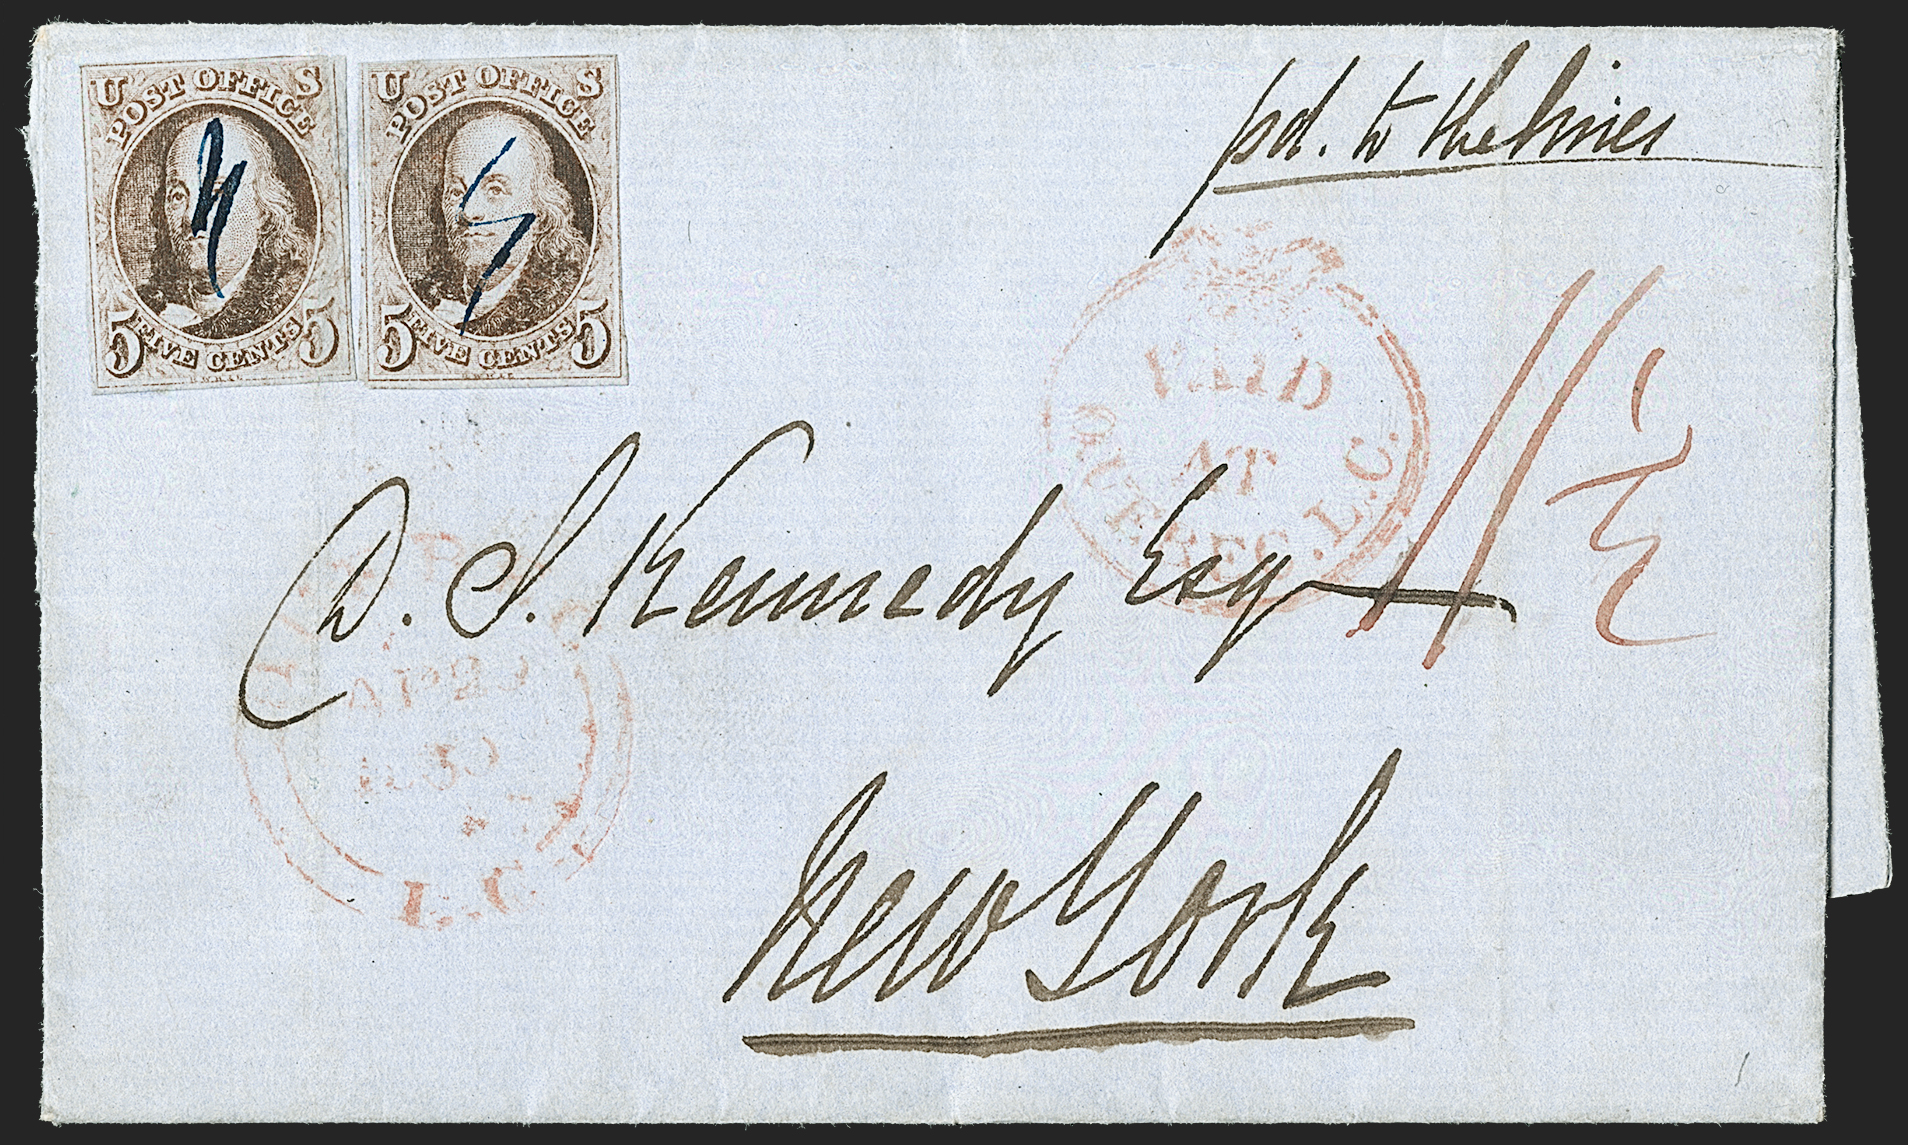 U S
POST OFFICE
5 FIVE CENTS 5
U S
POST OFFICE
5 FIVE CENTS 5
pd. to the lines
PAID
AT
QUEBEC. L.C.
11½
D. S. Kennedy Esq
New York
L.C.